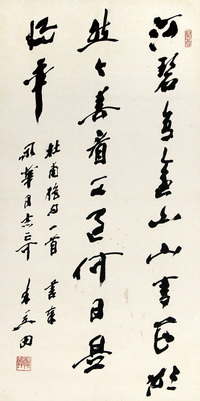 江碧鸟逾白山青花欲
然今春看又过何日是
归年
杜甫绝句一首 书奉
同志